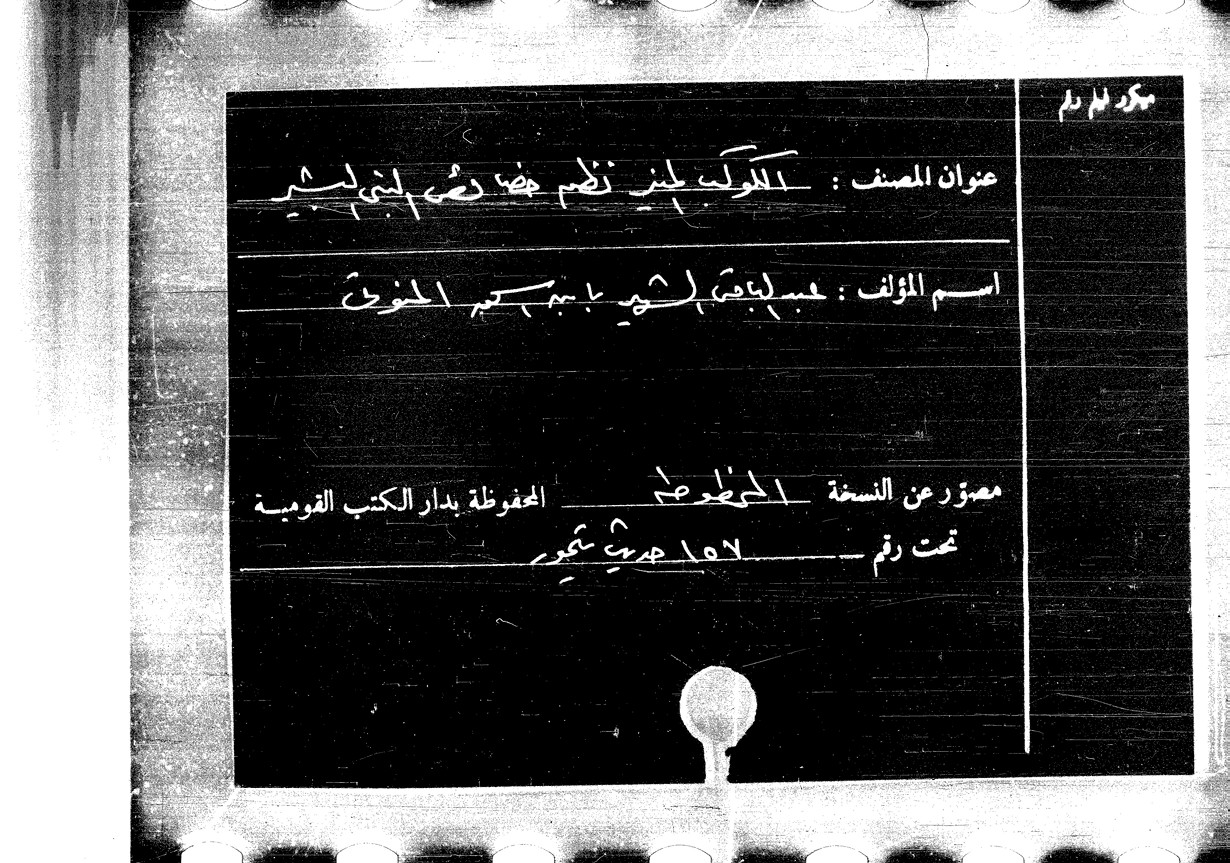 ميكروفيلم رقم
عنوان المصنف : الكوكب المنير نظم خصائص النبى البشير
اسم المؤلف : عبد الباقى الشهير بابن المنوفى
مصوّر عن النسخة المخطوطة المحفوظة بدار الكتب القومية
تحت رقم ١٥٧ حديث تيمور